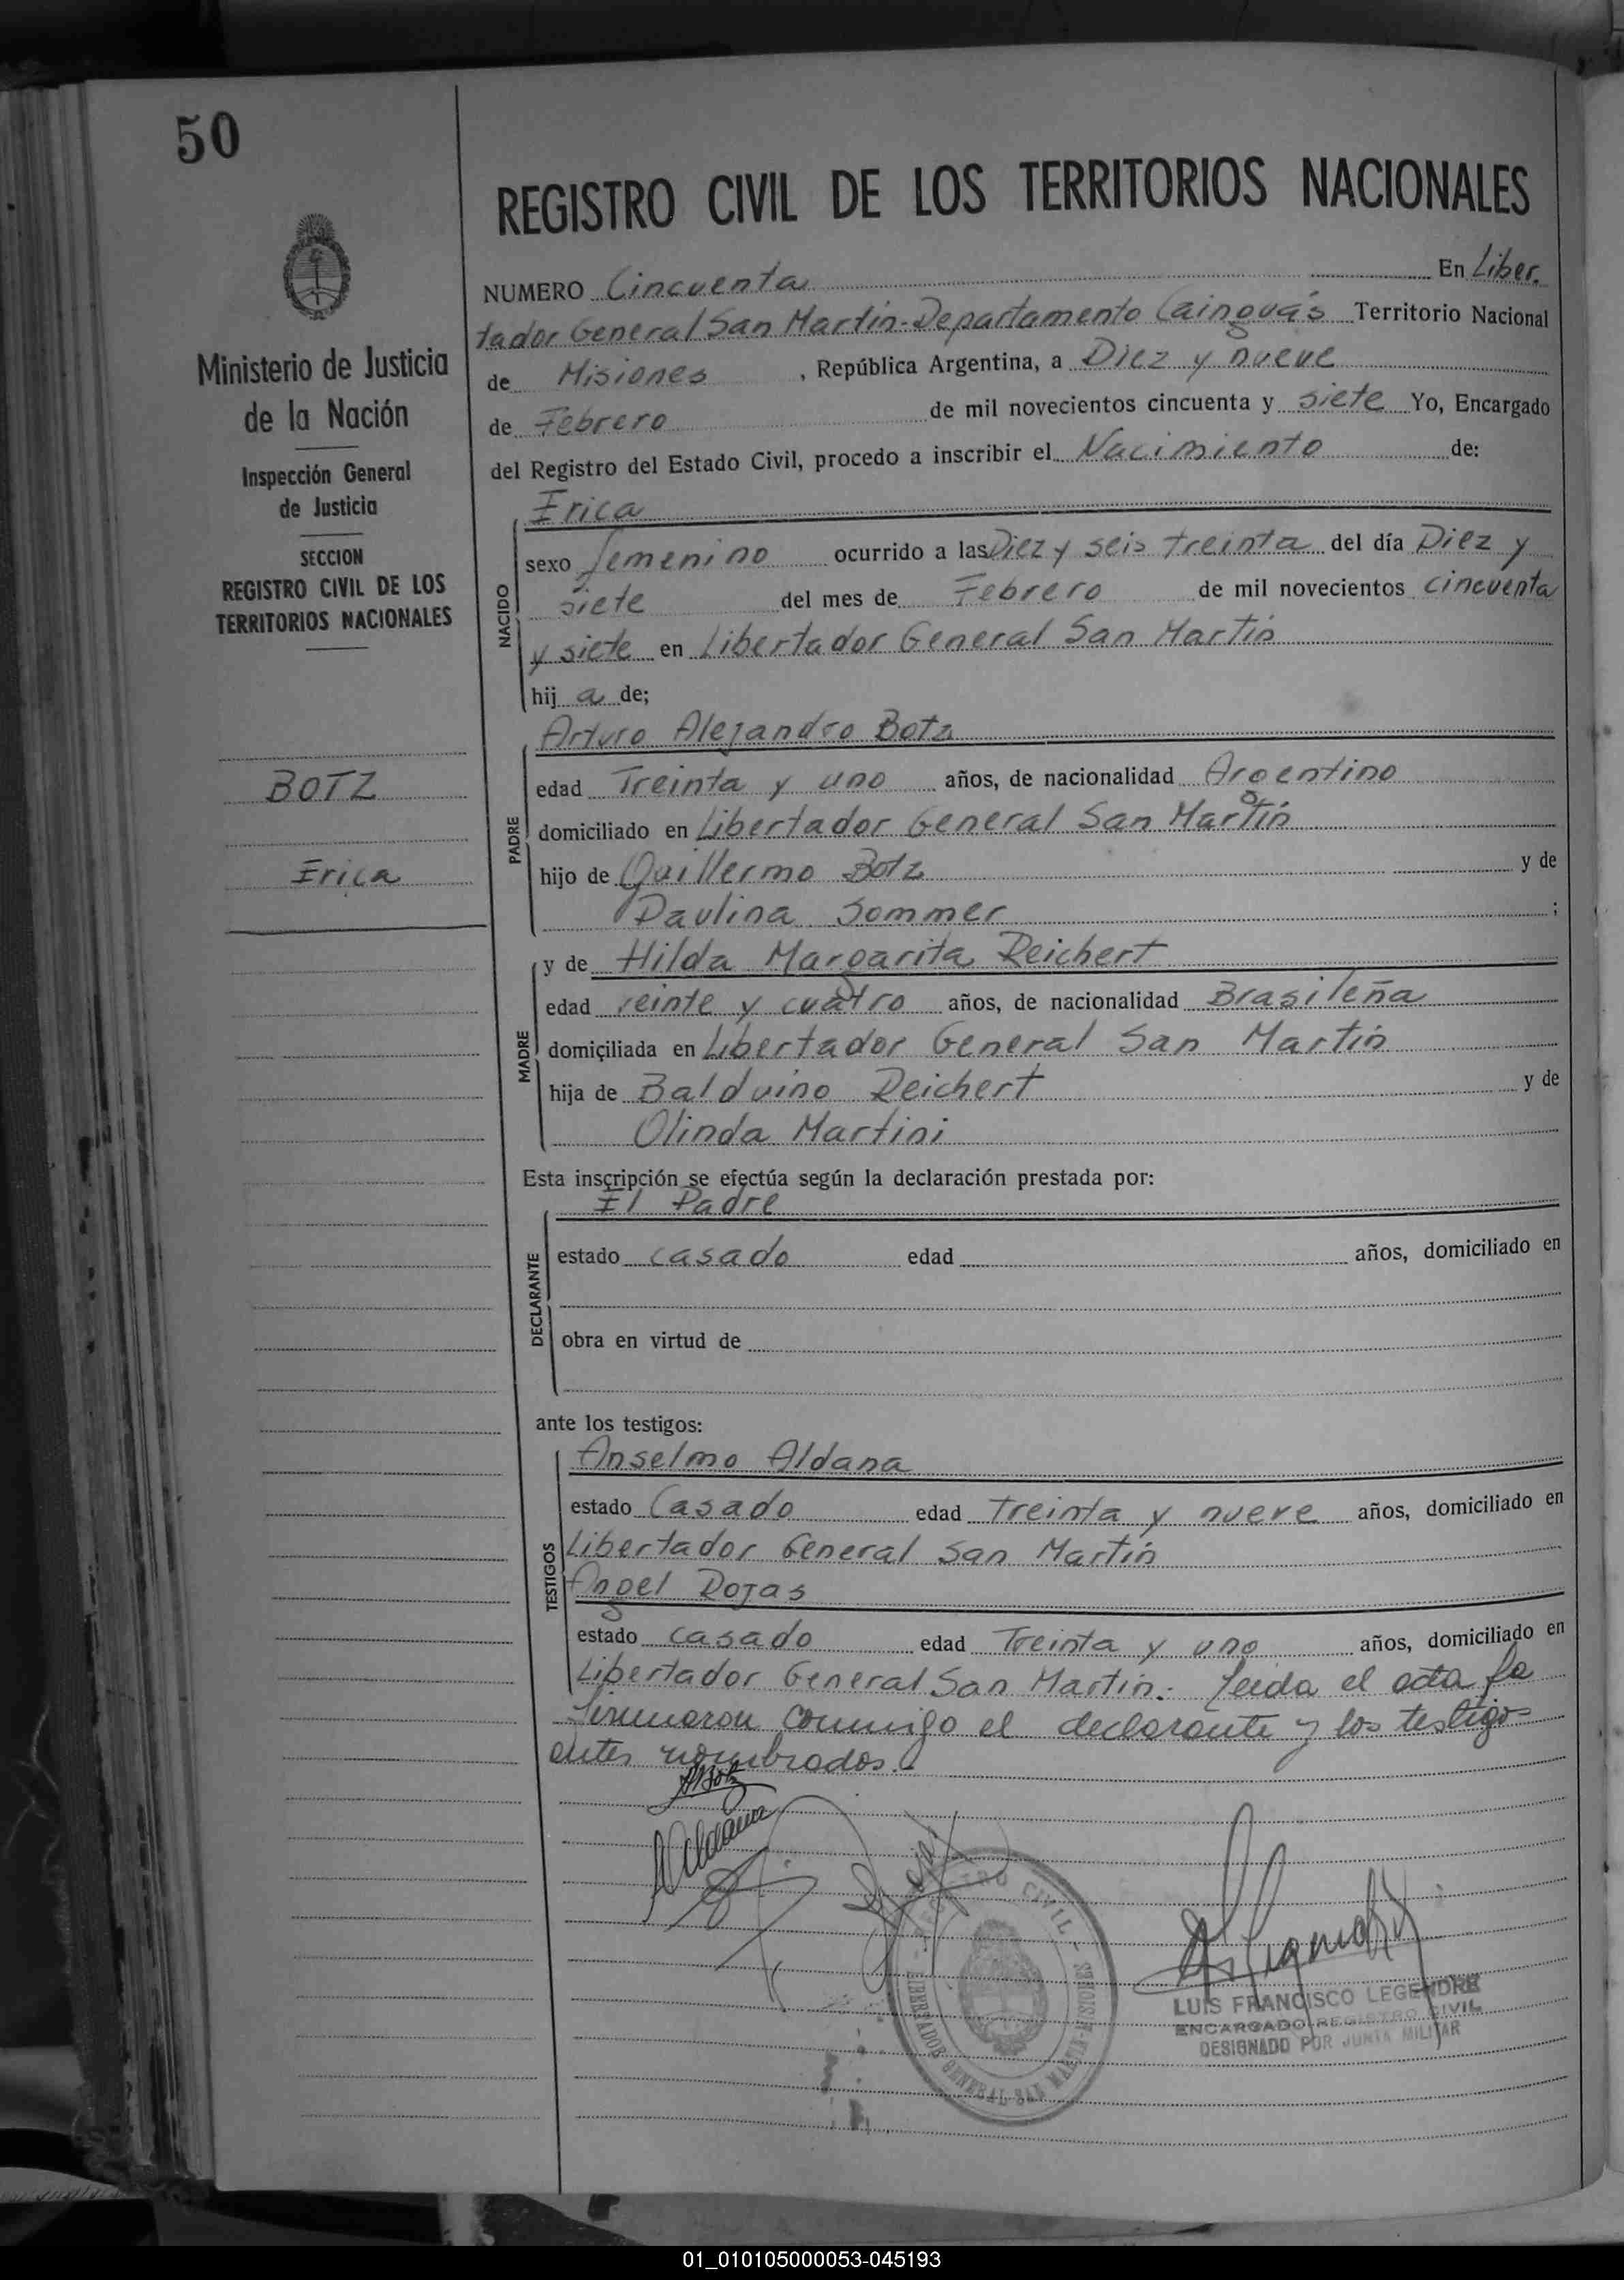 50
REGISTRO CIVIL DE LOS TERRITORIOS NACIONALES
Ministerio de Justicia
de la Nación
Inspección General
de Justicia
SECCION
REGISTRO CIVIL DE LOS
TERRITORIOS NACIONALES
BOTZ
Erica
NUMERO Cincuenta En Liber.
tador General San Martín-Departamento Cainguás Territorio Nacional
de Misiones, República Argentina, a Diez y nueve
de Febrero de mil novecientos cincuenta y siete Yo, Encargado
del Registro del Estado Civil, procedo a inscribir el Nacimiento de:
NACIDO
Erica
sexo femenino ocurrido a las Diez y seis treinta del día Diez y
siete del mes de Febrero de mil novecientos cincuenta
y siete en Libertador General San Martín
hij a de;
PADRE
Arturo Alejandro Botz
edad Treinta y uno años, de nacionalidad Argentino
domiciliado en Libertador General San Martín
hijo de Guillermo Botz y de
Paulina Sommer ;
MADRE
y de Hilda Margarita Reichert
edad veinte y cuatro años, de nacionalidad Brasileña
domiciliada en Libertador General San Martín
hija de Balduino Reichert y de
Olinda Martini
Esta inscripción se efectúa según la declaración prestada por:
DECLARANTE
El Padre
estado casado edad años, domiciliado en
obra en virtud de
ante los testigos:
TESTIGOS
Anselmo Aldana
estado Casado edad Treinta y nueve años, domiciliado en
Libertador General San Martín
Angel Rojas
estado casado edad Treinta y uno años, domiciliado en
Libertador General San Martín.- Leida el acta la
firmaron conmigo el declarante y los testigos
antes nombrados.-
ABotz
AAldana
REGISTRO CIVIL - LIBERTADOR GENERAL SAN MARTIN-MISIONES -
LUIS FRANCISCO LEGENDRE
ENCARGADO REGISTRO CIVIL
DESIGNADO POR JUNTA MILITAR
01_010105000053-045193